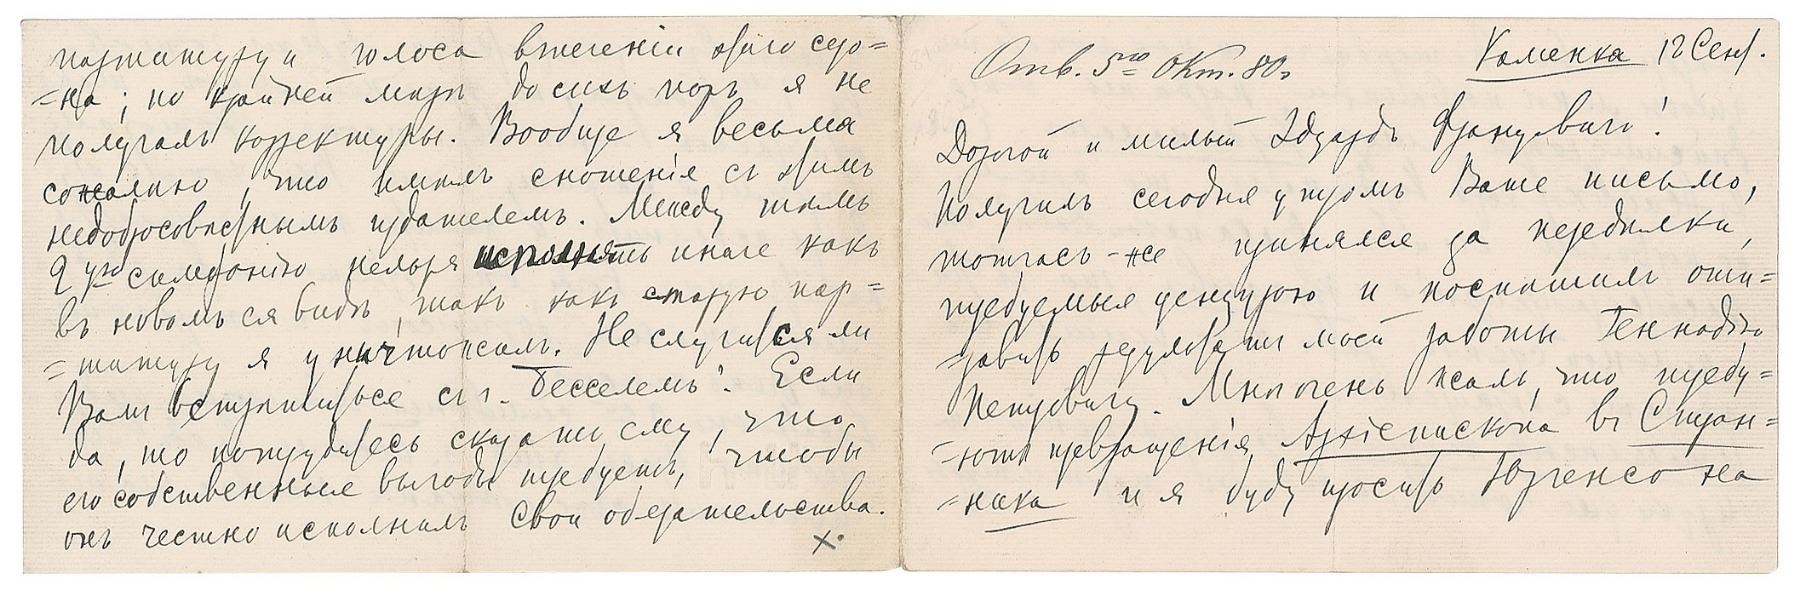 Отв. 5го Окт. 80г
Каменка 12 Сент.
Дорогой и милый Эдуардъ Францовичъ!
Получилъ сегодня утромъ Ваше письмо,
тотчасъ-же принялся за передѣлки,
требуемыя цензурою и поспѣшилъ отп=
=равить результаты моей работы Геннадію
Петровичу. Мнѣ очень жаль, что требу=
=ютъ превращенія Архіепископа въ Стран=
=ника и я буду просить Юргенсона
партитуру и голоса втеченіи этого сезо=
=на; по крайней мѣрѣ до сихъ поръ я не
получалъ корректуры. Вообще я весьма
сожалѣю, что имѣлъ сношенія съ этимъ
недобросовѣстнымъ издателемъ. Между тѣмъ
2ую симфонію нельзя исполнять иначе какъ
въ новомъ ея видѣ, такъ какъ старую пар=
=титуру я уничтожилъ. Не случится ли
Вамъ встрѣтиться съ г. Бесселемъ? Если
да, то потрудитесь сказать ему, что
его собственныя выгоды требуютъ, чтобы
онъ честно исполнилъ свои обязательства.